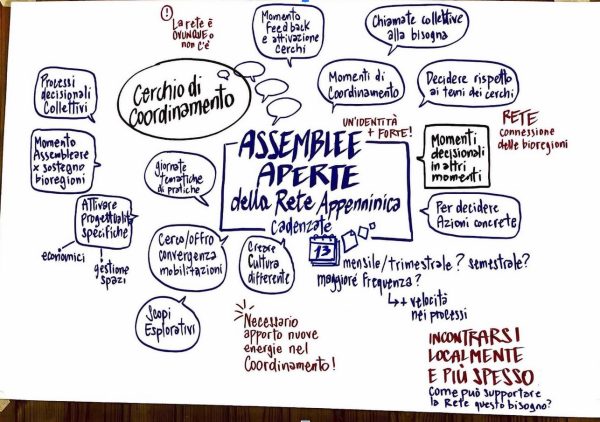 ! La rete è
OVUNQUE o
non c'è
Momento
feedback
e attivazione
cerchi
Chiamate collettive
alla bisogna
Processi
decisionali
Collettivi
Cerchio di
Coordinamento
Momenti di
Coordinamento
Decidere rispetto
ai temi dei cerchi
UN'IDENTITÀ
+ FORTE!
RETE
connessione
delle bioregioni
Momento
Assembleare
x sostegno
bioregioni
giornate
tematiche
di pratiche
ASSEMBLEE
APERTE
della Rete Appenninica
cadenzate
Momenti
decisionali
in altri
momenti
Attivare
Progettualità
specifiche
economici
gestione
spazi
Cerco/offro
convergenza
mobilitazioni
Creare
Cultura
differente
Per decidere
Azioni concrete
13
mensile/trimestrale? semestrale?
maggiore frequenza?
+ velocità
nei processi
Scopi
Esplorativi
Necessario
apporto nuove
energie nel
Coordinamento!
INCONTRARSI
LOCALMENTE
E PIÙ SPESSO
Come può supportare
la Rete questo bisogno?